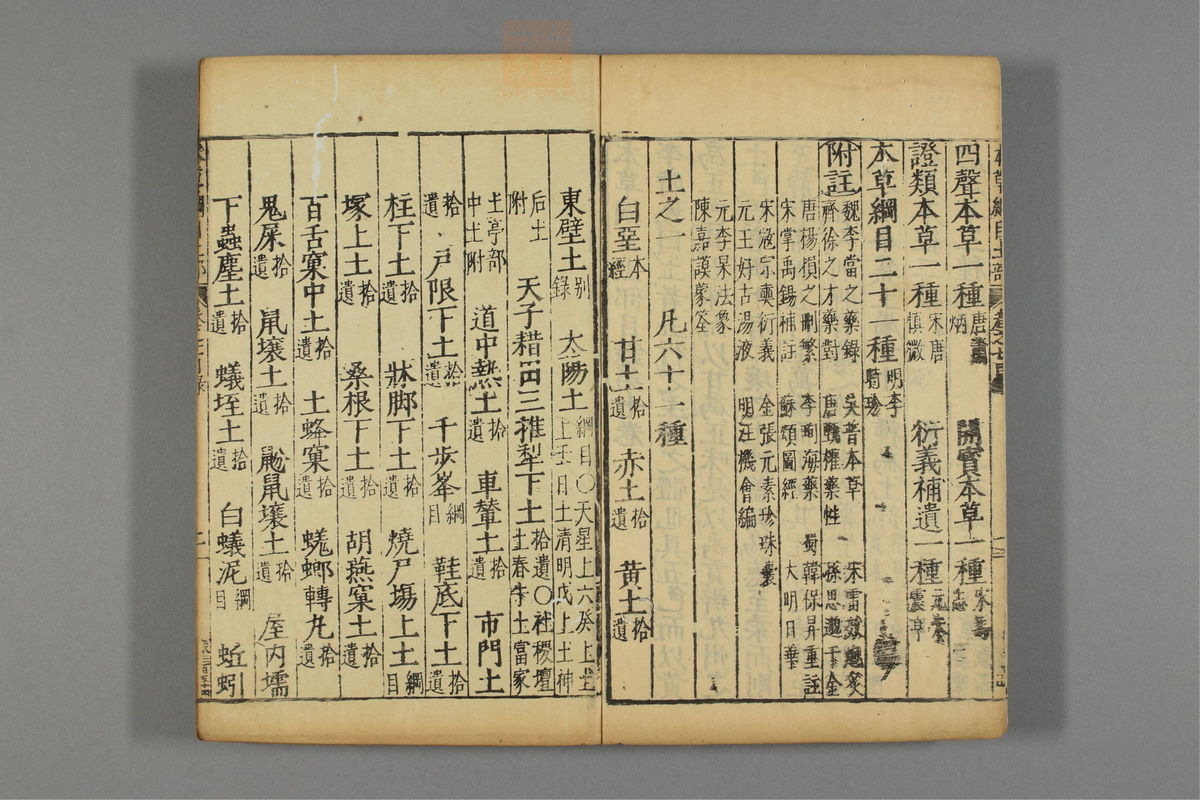 四聲本草一種唐蕭炳　開寶本草一種宋馬志
證類本草一種宋唐慎微　衍義補遺一種元朱震亨
本草綱目二十一種明李時珍
附註魏李當之藥錄　吳普本草　宋雷斆炮炙
齊徐之才藥對　唐甄權藥性　孫思邈千金
唐楊損之刪繁　李珣海藥　蜀韓保昇重註
宋掌禹錫補註　蘇頌圖經　大明日華
宋寇宗奭衍義　金張元素珍珠囊
元王好古湯液　明汪機會編
元李杲法象
陳嘉謨蒙筌
土之一　凡六十一種
白堊本經　甘土拾遺　赤土拾遺　黃土拾遺
東壁土別錄　太陽土綱目〇天星上土六癸上土上壬日土清明戊上土神
后土附　天子耤田三推犁下土拾遺〇社稷壇土春牛土富家
土亭部中土附　道中熱土拾遺　車輦土拾遺　市門土
拾遺　戶限下土拾遺　千步峯綱目　鞋底下土拾遺
柱下土拾遺　牀脚下土拾遺　燒尸塲上土綱目
塚上土拾遺　桑根下土拾遺　胡燕窠土拾遺
百舌窠中土拾遺　土蜂窠拾遺　蜣蜋轉丸拾遺
鬼屎拾遺　鼠壤土拾遺　鼢鼠壤土拾遺　屋內壖
下蟲塵土拾遺　蟻垤土拾遺　白蟻泥綱目　蚯蚓